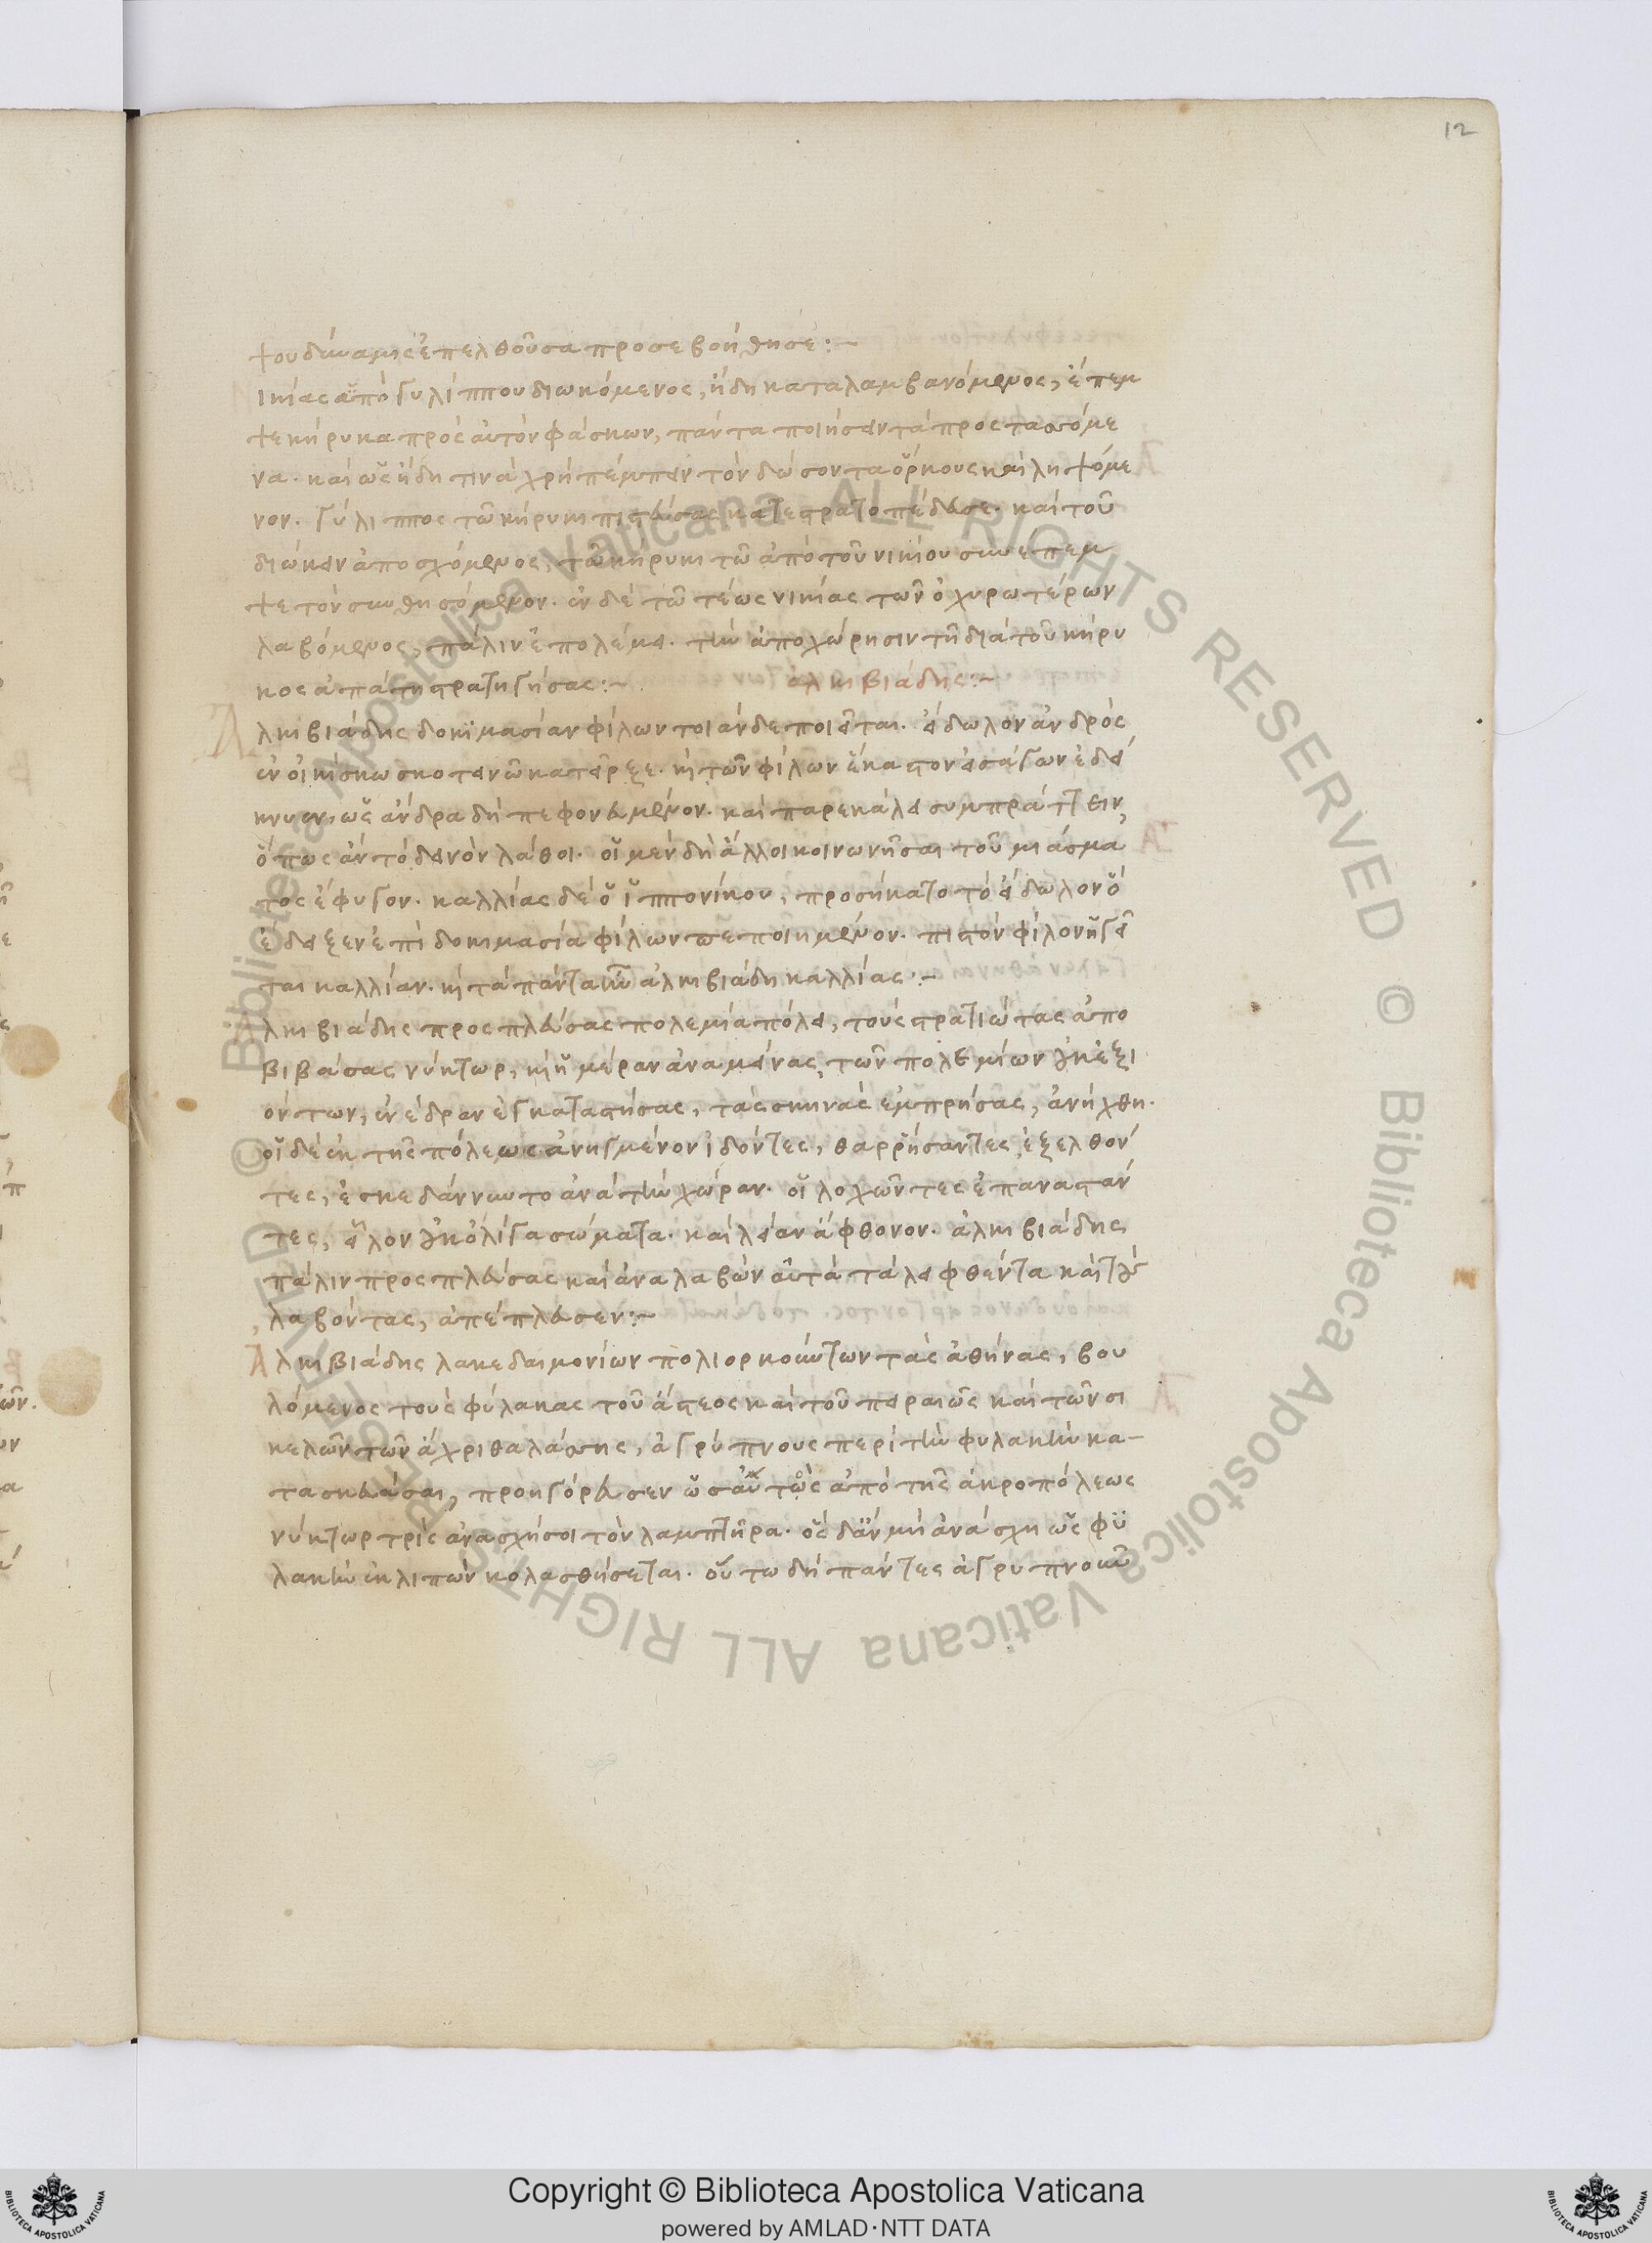 12
που δύναμις ἐπελθοῦσα προσεβοήθησε:~
ικίας ὑπὸ γυλίππου διωκόμενος, ἤδη καταλαμβανόμενος, ἔπεμ
ψε κήρυκα πρὸς αὐτὸν φάσκων, πάντα ποιήσειν τὰ προστασσόμε
να. καὶ ὡς ἤδη τινὰ χρὴ πέμπειν τὸν δώσοντα ὅρκους καὶ ληψόμε
νον. γύλιππος τῶ κήρυκι πιστεύσας κατεστρατοπέδευσε. καὶ τοῦ
διώκειν ἀποσχόμενος, τῶ κήρυκι τῶ ἀπὸ τοῦ νικίου συνέπεμ
ψε τὸν συνθησόμενον. ἐν δὲ τῶ τέως νικίας τῶν ὀχυρωτέρων
λαβόμενος, πάλιν ἐπολέμει. τὴν ἀποχώρησιν τῆ διὰ τοῦ κήρυ
κος ἀπάτη στρατηγήσας:~ ἀλκιβιάδης:~
Ἀλκιβιάδης δοκιμασίαν φίλων τοιάνδε ποιεῖται. εἴδωλον ἀνδρὸς
ἐν οἰκίσκω σκοτεινῶ κατεῖρξε. καὶ τῶν φίλων ἕκαστον εἰσάγων ἐδεί
κνυεν ὡς ἄνδρα δὴ πεφονευμένον. καὶ παρεκάλει συμπράττειν,
ὅπως ἂν τὸ δεινὸν λάθοι. οἱ μὲν δὴ ἄλλοι κοινωνῆσαι τοῦ μιάσμα
τος ἔφυγον. καλλίας δὲ ὁ ἱππονίκου, προσήκατο τὸ εἴδωλον ὃ
ἔδειξεν ἐπὶ δοκιμασία φίλων πεποιημένον. πιστὸν φίλον ἡγεῖ
ται καλλίαν. καὶ τὰ πάντα ἦν ἀλκιβιάδη καλλίας:~
λκιβιάδης προσπλεύσας πολεμία πόλει, τοὺς στρατιώτας ἀπο
βιβάσας νύκτωρ, καὶ ἡμέραν ἀναμείνας, τῶν πολεμίων οὐκ ἐξι
όντων, ἐνέδραν ἐγκαταστήσας, τὰς σκηνὰς ἐμπρήσας, ἀνήχθη.
οἱ δὲ ἐκ τῆς πόλεως ἀνηγμένον ἰδόντες, θαρρήσαντες ἐξελθόν
τες, ἐσκεδάννυντο ἀνὰ τὴν χώραν. οἱ λοχῶντες ἐπαναστάν
τες, εἷλον οὐκ ὀλίγα σώματα. καὶ λείαν ἄφθονον. ἀλκιβιάδης
πάλιν προσπλεύσας καὶ ἀναλαβὼν αὐτὰ τὰ λειφθέντα καὶ τοὺς
λαβόντας, ἀπέπλευσεν:~
Ἀλκιβιάδης λακεδαιμονίων πολιορκούντων τὰς ἀθήνας, βου
λόμενος τοὺς φύλακας τοῦ ἄστεος καὶ τοῦ πειραιῶς καὶ τῶν σ
κελῶν τῶν ἄχρι θαλάσσης, ἀγρύπνους περὶ τὴν φυλακὴν κα-
τασκευάσαι, προηγόρευσεν ὡς αὐτὸς ἀπὸ τῆς ἀκροπόλεως
νύκτωρ τρὶς ἀνασχήσοι τὸν λαμπτῆρα. ὃς δ' ἂν μὴ ἀνάσχη ὡς φυ
λακὴν ἐκλιπὼν κολασθήσεται. οὕτω δὴ πάντες ἀγρυπνοῦν
Copyright © Biblioteca Apostolica Vaticana
powered by AMLAD·NTT DATA